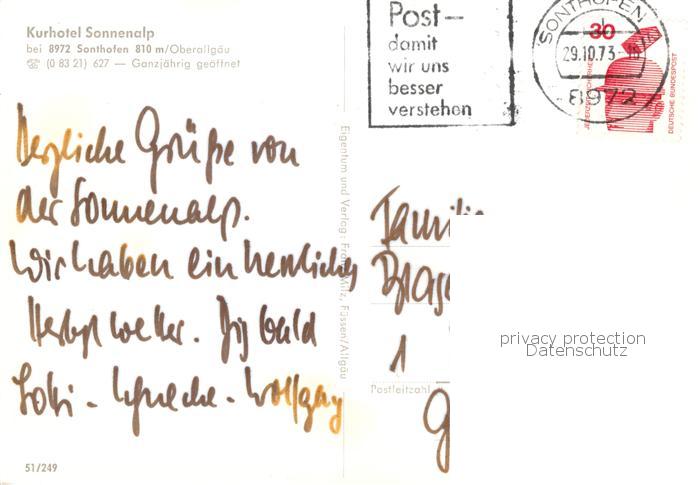 Kurhotel Sonnenalp
bei 8972 Sonthofen 810 m/Oberallgäu
☎ (0 83 21) 627 — Ganzjährig geöffnet
Post—
damit
wir uns
besser
verstehen
SONTHOFEN
29.10.73
8972
30
DEUTSCHE BUNDESPOST
Herzliche Grüße von
der Sonnenalp.
Wir haben ein herrliches
Herbstwetter. Bis bald
Wolfgang
Eigentum und Verlag: Franz Milz, Füssen/Allgäu
Familie
1
Postleitzahl
G
privacy protection
Datenschutz
51/249